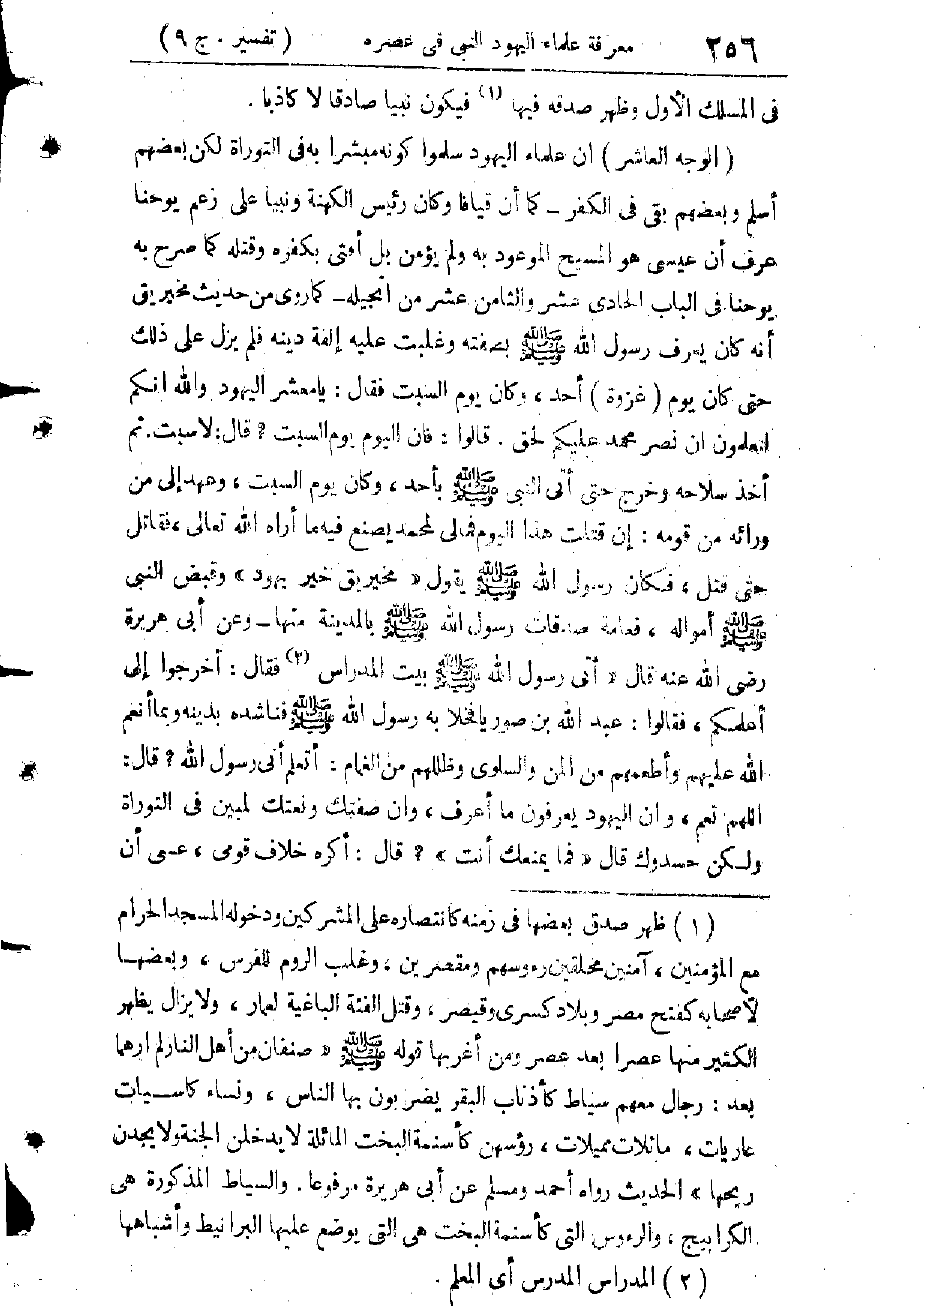 ٢٥٦ معرفة علماء اليهود النبي فى عصره ( تفسير . ج ٩ )
فى المسلك الأول وظهر صدقه فيها (١) فيكون نبيا صادقا لا كاذبا .
( الوجه العاشر ) ان علماء اليهود سلموا كونه مبشرا به فى التوراة لكن بعضهم
أسلم وبعضهم بقى فى الكفر ــ كما أن قيافا وكان رئيس الكهنة ونبيا على زعم يوحنا
عرف أن عيسى هو المسيح الموعود به ولم يؤمن بل أفتى بكفره وقتله كما صرح به
يوحنا فى الباب الحادى عشر والثامن عشر من انجيله ــ كما روى من حديث مخيريق
أنه كان يعرف رسول الله ﷺ بصفته وغلبت عليه إلفة دينه فلم يزل على ذلك
حتى كان يوم ( غزوة ) أحد ، وكان يوم السبت فقال : يا معشر اليهود والله انكم
لتعلمون ان نصر محمد عليكم لحق . قالوا : فان اليوم يوم السبت ؟ قال : لا سبت . ثم
أخذ سلاحه وخرج حتى أتى النبي ﷺ بأحد ، وكان يوم السبت ، وعهد إلى من
ورائه من قومه : إن قتلت هذا اليوم فمالى لمحمد يصنع فيه ما أراه الله تعالى ، فقاتل
حتى قتل ، فكان رسول الله ﷺ يقول « مخيريق خير يهود » وقبض النبي
ﷺ أمواله ، فعامة صدقات رسول الله ﷺ بالمدينة منها ــ وعن أبى هريرة
رضى الله عنه قال « أتى رسول الله ﷺ بيت المدراس (٢) فقال : أخرجوا إلى
أعلمكم ، فقالوا : عبد الله بن صوريا فخلا به رسول الله ﷺ فناشده بدينه وبما أنعم
الله عليهم وأطعمهم من المن والسلوى وظللهم من الغمام : أتعلم أنى رسول الله ؟ قال :
اللهم نعم ، وان اليهود يعرفون ما أعرف ، وان صفتك ونعتك لمبين فى التوراة
ولكن حسدوك قال « فما يمنعك أنت » ؟ قال : أكره خلاف قومى ، عسى أن
( ١ ) ظهر صدق بعضها فى زمنه كانتصاره على المشركين ودخوله المسجد الحرام
مع المؤمنين ، آمنين محلقين رءوسهم ومقصرين ، وغلب الروم للفرس ، وبعضها
لأصحابه كفتح مصر وبلاد كسرى وقيصر ، وقتل الفئة الباغية لعمار ، ولا يزال يظهر
الكثير منها عصرا بعد عصر ومن أغربها قوله ﷺ « صنفان من أهل النار لم ارهما
بعد : رجال معهم سياط كأذناب البقر يضربون بها الناس ، ونساء كاسيات
عاريات ، مائلات مميلات ، رؤسهن كأسنمة البخت المائلة لا يدخلن الجنة ولا يجدن
ريحها » الحديث رواه أحمد ومسلم عن أبى هريرة مرفوعا . والسياط المذكورة هى
الكرابيج ، والرءوس التى كأسنمة البخت هى التى يوضع عليها البرانيط وأشباهها
( ٢ ) المدراس المدرس أى المعلم .